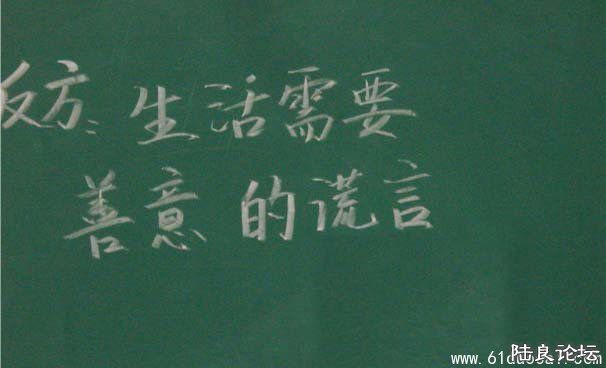 反方：生活需要
善意的谎言
陆良论坛